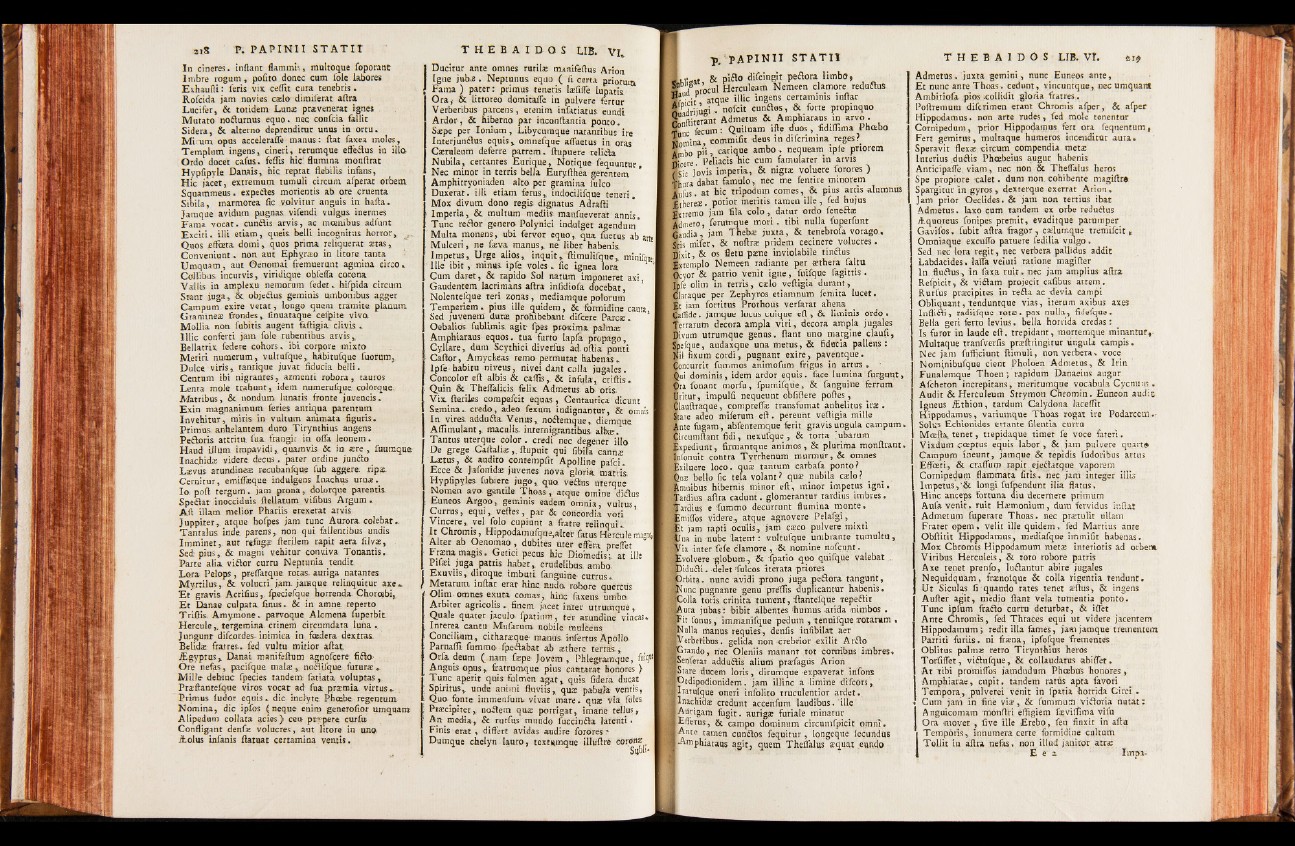 218 P. PAPINII STATII
In cineres. instant flammis, multoque soporant
Imbre rogum, posito donec cum sole labores
Exhausti: seris vix cessit cura tenebris.
Roscida jam novies cælo dimiserat astra
Lucifer, & totidem Lunæ prævenerat ignes
Mutato nocturnus equo. nec conscia fallit
Sidera, & alterno deprenditur unus in ortu.
Mirum opus accelerasse manus: stat saxea moles,
Templum ingens, cineri, rerumque effectus in illo
Ordo docet casus. fessis hic flumina monstrat
Hypsipyle Danais, hic reptat flebilis infans,
Hic jacet, extremum tumuli circum asperat orbem
Squammeus. expectes morientis ab ore cruenta
Sibila, marmorea sic volvitur anguis in hasta.
Jamque avidum pugnas visendi vulgus inermes
Fama vocat. cunctis arvis, ac mœnibus adsunt
Exciti. illi etiam, queis belli incognitus horror,
Quos effœta domi, quos prima reliquerat ætas,
Conveniunt. non aut Ephyræo in litore tanta
Umquam, aut Oenomai fremuerunt agmina circo.
Collibus incurvis, viridique obsessa corona
Vallis in amplexu nemorum sedet. hispida circum
Stant juga, & objectus geminis umbonibus agger
Campum exire vetat, longo quem tramite planum
Gramineæ frondes, sinuataque cespite vivo
Mollia non subitis augent fastigia clivis.
Illic conferti jam sole rubentibus arvis,
Bellatrix sedere cohors. ibi corpore mixto
Metiri numerum, vultusque, habitusque suorum,
Dulce viris, tantique juvat fiducia belli.
Centum ibi nigrantes, armenti robora, tauros
Lenta mole trahunt, idem numerusque colorque
Matribus, & nondum lunatis fronte juvencis.
Exin magnanimum series antiqua parentum
Invehitur, miris in vultum animata figuris.
Primus anhelantem duro Tirynthius angens
Pectoris attritu sua frangit in ossa leonem.
Haud illum impavidi, quamvis & in ære, suumque
Inachidæ videre decus. pater ordine juncto
Lævus arundineæ recubansque sub aggere ripæ
Cernitur, emissæque indulgens Inachus urnæ.
Io post tergum. jam prona, dolorque parentis
Spectat inocciduis stellatum visibus Argum.
Ast illam melior Phariis erexerat arvis
Juppiter, atque hospes jam tunc Aurora colebat.
Tantalus inde parens, non qui fallentibus undis
Imminet, aut refugæ sterilem rapit aera silvæ,
Sed pius, & magni vehitur conviva Tonantis.
Parte alia victor curru Neptunia tendit
Lora Pelops, pressatque rotas auriga natantes
Myrtilus, & volucri jam jamque relinquitur axe.
Et gravis Acrisius, speciesque horrenda Chorœbi,
Et Danae culpata sinus. & in amne reperto
Tristis Amymone. parvoque Alcmena superbit
Hercule, tergemina crinem circumdata luna.
Jungunt discordes inimica in fœdera dextras
Belidæ fratres. sed vultu mitior astat
Ægyptus, Danai manifestum agnoscere ficto
Ore nefas, pacisque malæ, noctisque futuræ.
Mille dehinc species tandem satiata voluptas,
Præstantesque viros vocat ad sua præmia virtus.
Primus sudor equis. dic inclyte Phœbe regentum
Nomina, dic ipsos (neque enim generosior umquam
Alipedum collata acies) ceu præpere cursu
Confligant densæ volucres, aut litore in uno
Æolus insanis statuat certamina ventis.
THEBAIDOS LIB. VI.
Ducitur ante omnes rutilæ manifestus Arion
Igne jubæ. Neptunus equo ( si certa priorum
Fama ) pater: primus teneris læsisse lupatis
Ora, & littoreo domitasse in pulvere fertur
Verberibus parcens, etenim insatiatus eundi
Ardor, & hiberno par inconstantia ponto.
Sæpe per Ionium, Libycumque natantibus ire
Interjunctus equis, omnesque assuetus in oras
Cæruleum deferre patrem. stupuere relicta
Nubila, certantes Eurique, Notique sequuntur,
Nec minor in terris bella Eurysthea gerentem
Amphitryoniaden alto per gramina sulco
Duxerat. illi etiam ferus, indocilisque teneri.
Mox divum dono regis dignatus Adrasti
Imperia, & multum mediis mansueverat annis.
Tunc rector genero Polynici indulget agendum
Multa monens, ubi fervor equo, qua suetus ab arte
Mulceri, ne sæva manus, ne liber habenis
Impetus, Urge alios, inquit, stimulisque, minisque
Ille ibit, minus ipse voles. sic ignea lora
Cum daret, & rapido Sol natum imponeret axi,
Gaudentem lacrimans astra insidiosa docebat,
Nolentesque teri zonas, mediamque polorum
Temperiem. pius ille quidem, & formidine cauta,
Sed juvenem duræ prohibebant discere Parcæ.
Oebalios sublimis agit spes proxima palmæ
Amphiaraus equos. tua furto lapsa propago,
Cyllare, dum Scythici diversus ad ostia ponti
Castor, Amycleas remo permutat habenas.
Ipse habitu niveus, nivei dant colla jugales.
Concolor est albis & cassis, & infula, cristis.
Quin & Thessalicis felix Admetus ab oris
Vix steriles compescit equas, Centaurica dicunt
Semina. credo, adeo sexum indignantur, & omnis
In vires adducta Venus, noctemque, diemque
Assimulant, maculis internigrantibus albæ.
Tantus uterque color. credi nec degener illo
De grege Castaliæ, stupuit qui sibila cannæ
Lætus, & audito contempsit Apolline pasci.
Ecce & Jasonidæ juvenes nova gloria matris
Hypsipyles subiere jugo, quo vectus uterque
Nomen avo gentile Thoas, atque omine dictus
Euneos Argoo, geminis eadem omnia, vultus,
Currus, equi, vestes, par & concordia voti
Vincere, vel solo cupiunt a fratre relinqui.
It Chromis, Hippodamusque, alter satus Hercule magno,
Alter ab Oenomao, dubites uter effera presset
Fræna magis. Getici pecus hic Diomedis: at ille
Pisæi juga patris habet, crudelibus ambo
Exuviis, diroque imbuti sanguine currus.
Metarum instar erat hinc nudo robore quercus
Olim omnes exuta comas, hinc saxeus umbo
Arbiter agricolis. finem jacet inter utrumque,
Quale quater jaculo spatium, ter arundine vincas.
Interea cantu Musarum nobile mulcens
Concilium, citharæque manus insertus Apollo
Parnassi summo spectabat ab æthere terras,
Orsa deum (nam sæpe Jovem, Phlegramque, suique
Anguis opus, fratrumque pius cantarat honores )
Tunc aperit quis fulmen agat, quis sidera ducat
Spiritus, unde animi fluviis, quæ pabula ventis,
Quo fonte immensum vivat mare. quæ via soles
Præcipitet, noctem quæ porrigat, imane tellus,
An media, & rursus mundo succincta latenti.
Finis erat, differt avidas audire sorores:
Dumque chelyn lauro, textumque illustre coronæ
Subli-
P. PAPINII STATII
Subligat, & picto discingit pectora limbo,
Haud procul Herculeam Nemeen clamore reductus
Aspicit, atque illic ingens certaminis instar
Quadrijugi. noscit cunctos, & forte propinquo
Constiterant Admetus & Amphiaraus in arvo.
Tunc secum: Quisnam iste duos, fidissima Phœbo
Nomina, commisit deus in discrimina reges?
Ambo pii, carique ambo. nequeam ipse priorem
Dicere. Peliacis hic cum famularer in arvis
( Sic Jovis imperia, & nigræ voluere sorores )
Thura dabat famulo, nec me sentire minorem
Ausus. at hic tripodum comes, & pius artis alumnus
Æthereæ. potior meritis tamen ille, sed hujus
Extremo jam fila colo, datur ordo senectæ
Admeto, serumque mori. tibi nulla supersunt
Gaudia, jam Thebæ juxta, & tenebrosa vorago.
Scis miser, & nostræ pridem cecinere volucres.
Dixit, & os fletu pæne inviolabile tinctus
Extemplo Nemeen radiante per æthera saltu
Ocyor & patrio venit igne, suisque sagittis.
Ipse olim in terris, cælo vestigia durant,
Claraque per Zephyros etiamnum semita lucet.
Et jam sortitus Prothous versarat ahena
Casside. jamque locus cuique est, & liminis ordo.
Terrarum decora ampla viri, decora ampla jugales
Divum utrumque genus. stant uno margine clausi,
Spesque, audaxque una metus, & fiducia pallens:
Nil fixum cordi, pugnant exire, paventque.
Concurrit summos animosum frigus in artus.
Qui dominis, idem ardor equis. face lumina surgunt,
Ora sonant morsu, spumisque, & sanguine ferrum
Uritur, impulsi nequeunt obsistere postes,
Claustraque, compressæ transfumat anhelitus iræ.
Stare adeo miserum est. pereunt vestigia mille
Ante fugam, absentemque ferit gravis ungula campum.
Circumstant fidi, nexusque, & torta jubarum
Expediunt, firmantque animos, & plurima monstrant.
Insonuit contra Tyrrhenum murmur, & omnes
Exiluere loco. quæ tantum carbasa ponto?
Quæ bello sic tela volant? quæ nubila cælo?
Amnibus hibernis minor est, minor impetus igni.
Tardius astra cadunt. glomerantur tardius imbres.
Tardius e summo decurrunt flumina monte.
Emissos videre, atque agnovere Pelasgi,
Et jam rapti oculis, jam cæco pulvere mixti
Una in nube latent: vultusque umbrante tumultu,
Vix inter sese clamore, & nomine noscunt.
Evolvere globum, & spatio quo quisque valebat
Diducti. delet sulcos iterata priores
Orbita. nunc avidi prono juga pectora tangunt,
Nunc pugnante genu pressis duplicantur habenis.
Colla toris crinita tument, stantesque repectit
Aura jubas: bibit albentes humus arida nimbos.
Fit sonus, immanisque pedum, tenuisque rotarum.
Nulla manus requies, densis insibilat aer
Verberibus. gelida non crebrior exilit Arcto
Grando, nec Oleniis manant tot cornibus imbres.
Senserat adductis alium præsagus Arion
Stare ducem loris, dirumque expaverat insons
Oedipodionidem. jam illinc a limine discors,
Iratusque oneri insolito truculentior ardet.
Inachidæ credunt accensum laudibus. ille
Aurigam fugit. aurigæ furiale minatur
Effertus, & campo dominum circumspicit omni.
Ante tamen cunctos sequitur, longeque secundus
Amphiaraus agit, quem Thessalus æquat eundo
THEBAIDOS LIB. VI. 219
Admetus. juxta gemini, nunc Euneos ante,
Et nunc ante Thoas. cedunt, vincuntque, nec umquam
Ambitiosa pios collidit gloria fratres.
Postremum discrimen erant Chromis asper, & asper
Hippodamus. non arte rudes, sed mole tenentur
Cornipedum, prior Hippodamus fert ora sequentum,
Fert gemitus, multaque humeros incenditur aura.
Speravit flexæ circum compendia metæ
Interius ductis Phœbeius augur habenis
Anticipasse viam, nec non & Thessalus heros
Spe propiore calet. dum non cohibente magistro
Spargitur in gyros, dexterque exerrat Arion.
Jam prior Oeclides. & jam non tertius ibat
Admetus. laxo cum tandem ex orbe reductus
Æquoreus sonipes premit, evaditque parumper
Gavisos. subit astra fragor, cælumque tremiscit,
Omniaque excusso patuere sedilia vulgo.
Sed nec lora regit, nec verbera pallidus addit
Labdacides. lassa veluti ratione magister
In fluctus, in saxa ruit. nec jam amplius astra
Respicit, & victam projecit casibus artem.
Rursus præcipites in recta ac devia campi
Obliquant, tenduntque vias, iterum axibus axes
Inflicti, radiisque rotæ. pax nulla, fidesque.
Bella geri ferro levius. bella horrida credas:
Is furor in laude est, trepidant, mortemque minantur,
Multaque transversis præstringitur ungula campis.
Nec jam sufficiunt stimuli, non verbera. voce
Nominibusque cient Pholoen Admetus, & Irin
Funalemque Thoen; rapidum Danaeius augur
Ascheton increpitans, meritumque vocabula Cycnum.
Audit & Herculeum Strymon Chromin. Euneon audit
Igneus Æthion, tardum Calydona lacessit
Hippodamus, variumque Thoas rogat ire Podarcem.
Solus Echionides errante silentia curru
Mœsta, tenet, trepidaque timet se voce fateri.
Vixdum cœptus equis labor, & jam pulvere quarto
Campum ineunt, jamque & tepidis sudoribus artus
Effœti, & crassum rapit ejectatque vaporem
Cornipedum flammata sitis. nec jam integer illis
Impetus, & longi suspendunt ilia flatus.
Hinc anceps fortuna diu decernere primum
Ausa venit. ruit Hæmonium, dum fervidus instat
Admetum superare Thoas. nec prætulit ullam
Frater opem. velit ille quidem. sed Martius ante
Obstitit Hippodamus, mediasque immisit habenas.
Mox Chromis Hippodamum metæ interiotis ad orbem
Viribus Herculeis, & toto robore patris
Axe tenet prenso, luctantur abire jugales
Nequidquam, frænosque & colla rigentia tendunt.
Ut Siculas si quando rates tenet æstus, & ingens
Auster agit, medio stant vela tumentia ponto.
Tunc ipsum fracto curru deturbat, & isset
Ante Chromis, sed Thraces equi ut videre jacentem
Hippodamum; redit illa fames, jam jamque trementem
Partiti furiis. ni fræna, ipsosque frementes
Oblitus palmæ retro Tirynthius heros
Torsisset, victusque, & collaudatus abisset.
At tibi promissos jamdudum Phœbus honores,
Amphiaraë, cupit. tandem ratus apta favori
Tempora, pulverei venit in spatia horrida Circi.
Cum jam in fine viæ, & summum victoria nutat:
Anguicomam monstri effigiem sævissima visu
Ora movet, sive ille Erebo, seu finxit in astu
Temporis, innumera certe formidine cultum
Tollit in astra nefas. non illud janitor atræ
E e 2 Impa-